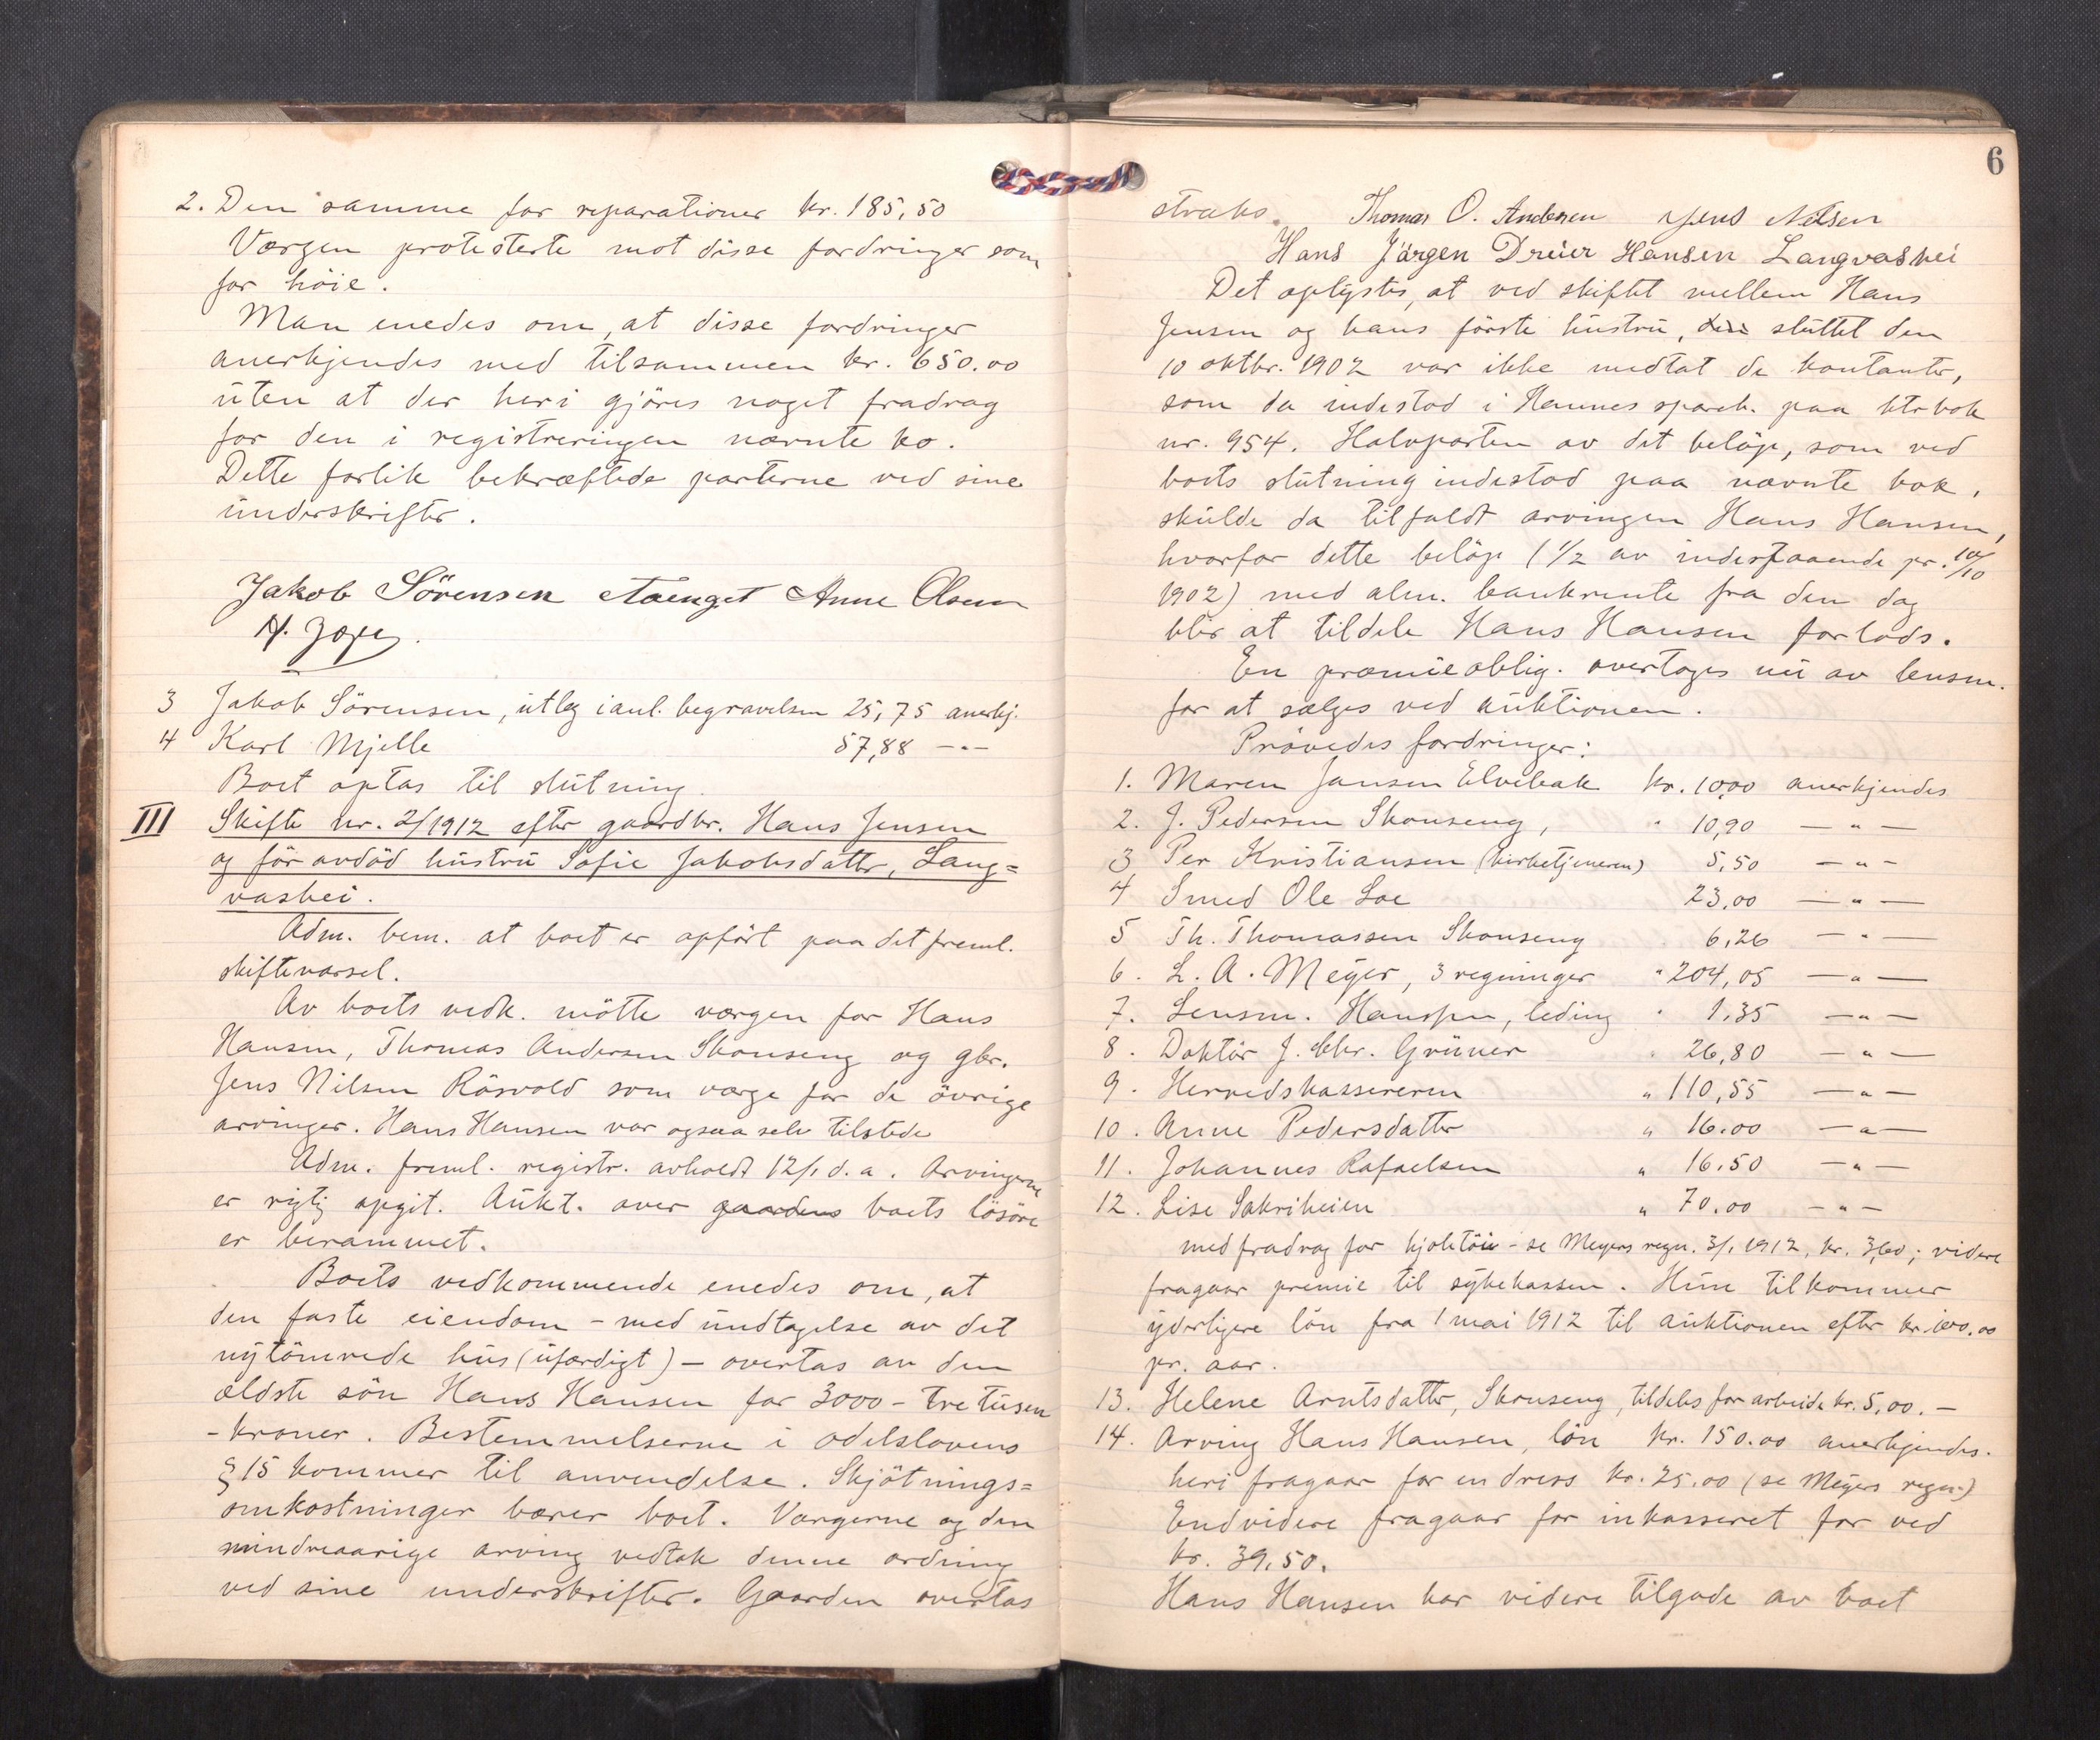 2. Den samme for reparationer kr. 185,50
Værgen protesterte mot disse fordringer som
for höie.
Man enedes om, at disse fordringer
anerkjendes med tilsammen kr. 650.00
uten at der heri gjöres noget fradrag
for den i registreringen nævnte ko.
Dette forlik bekræftede parterne ved sine
underskrifter.
Jakob Sörensen Anne Olsen
3 Jakob Sörensen, utlæg i anl. begravelsen 25,75 anerkj.
4 Karl Mjelle 57,88 -"-
Boet optas til slutning.
III Skifte nr. 2/1912 efter gaardbr. Hans Jensen
og för avdöd hustru Sofie Jakobsdatter, Lang=
vashei.
Adm. bem. at boet er opfört paa det freml.
skiftevarsel.
Av boets vedk. mötte værgen for Hans
Hansen, Thomas Andersen Skonseng og gbr.
Jens Nilsen Rösvold som værge for de övrige
arvinger. Hans Hansen var ogsaa selv tilstede
Adm. freml. registr. avholdt 12/1 d.a. Arvingerne
er rigtig opgit. Aukt. over gaardens boets lösöre
er berammet.
Boets vedkommende enedes om, at
den faste eiendom - med undtagelse av det
nytömrede hus (ufærdigt) - overtas av den
ældste sön Hans Hansen for 3000 - tre tusen
- kroner. Bestemmelserne i odelslovens
§ 15 kommer til anvendelse. Skjötnings=
omkostninger bærer boet. Værgerne og den
mindreaarige arving vedtok denne ordning
ved sine underskrifter. Gaarden overtas
6
straks. Thomas O. Andersen Jens Nilsen
Hans Jörgen Dreier Hansen Langvashei
Det oplystes, at ved skiftet mellem Hans
Jensen og hans förste hustru, den sluttet den
10 oktbr. 1902 var ikke medtat de kontanter,
som da indestod i Hemnes spareb. paa ktrbok
nr. 954. Halvparten av det belöp, som ved
boets slutning indestod paa nævnte bok,
skulde da tilfaldt arvingen Hans Hansen,
hvorfor dette belöp (1/2 av indestaaende pr. 10/10
1902) med alm. bankrente fra den dag
blir at tildele Hans Hansen forlods.
En præmieoblig. overtoges nu av lensm.
for at sælges ved auktionen.
Prövedes fordringer:
1. Maren Jansen Elvebak kr. 10,00 anerkjendes
2. J. Pedersen Skonseng, " 10,90 -"-
3 Per Kristiansen (kirketjeneren) 5,50 -"-
4 Smed Ole Loe 23,00 -"-
5 Th. Thomassen Skonseng 6,26 -"-
6. L. A. Meyer, 3 regninger " 204,05 -"-
7. Lensm. Hanssen, leding " 1,35 -"-
8. Doktor J. Chr. Grüner " 26,80 -"-
9. Herredskassereren " 110,55 -"-
10. Anne Pedersdatter " 16.00 -"-
11. Johannes Rafaelsen " 16.50 -"-
12. Lise Sakriheien " 70.00 -"-
med fradrag for kjoletöi - se Meyers regn. 3/1 1912, kr. 3,60; videre
fragaar premie til sykekassen. Hun tilkommer
yderligere lön fra 1 mai 1912 til auktionen efter kr. 100.00
pr. aar.
13. Helene Arntsdatter, Skonseng, tildeles for arbeide kr. 5,00. -
14. Arving Hans Hansen, lön kr. 150.00 anerkjendes.
heri fragaar for en dress kr. 25.00 (se Meyers regn.)
Endvidere fragaar for inkasseret for ved
kr. 39.50.
Hans Hansen har videre tilgode av boet